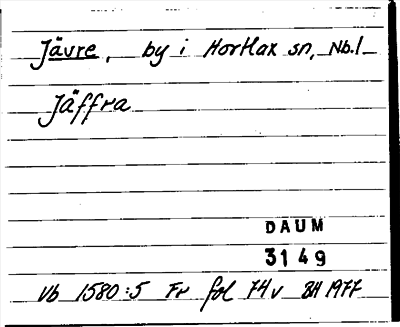 Jävre, by i Hortlax sn, Nb.l
Jäffra
DAUM
3149
Vb 1580:5 Fr fol 74v BH 1977